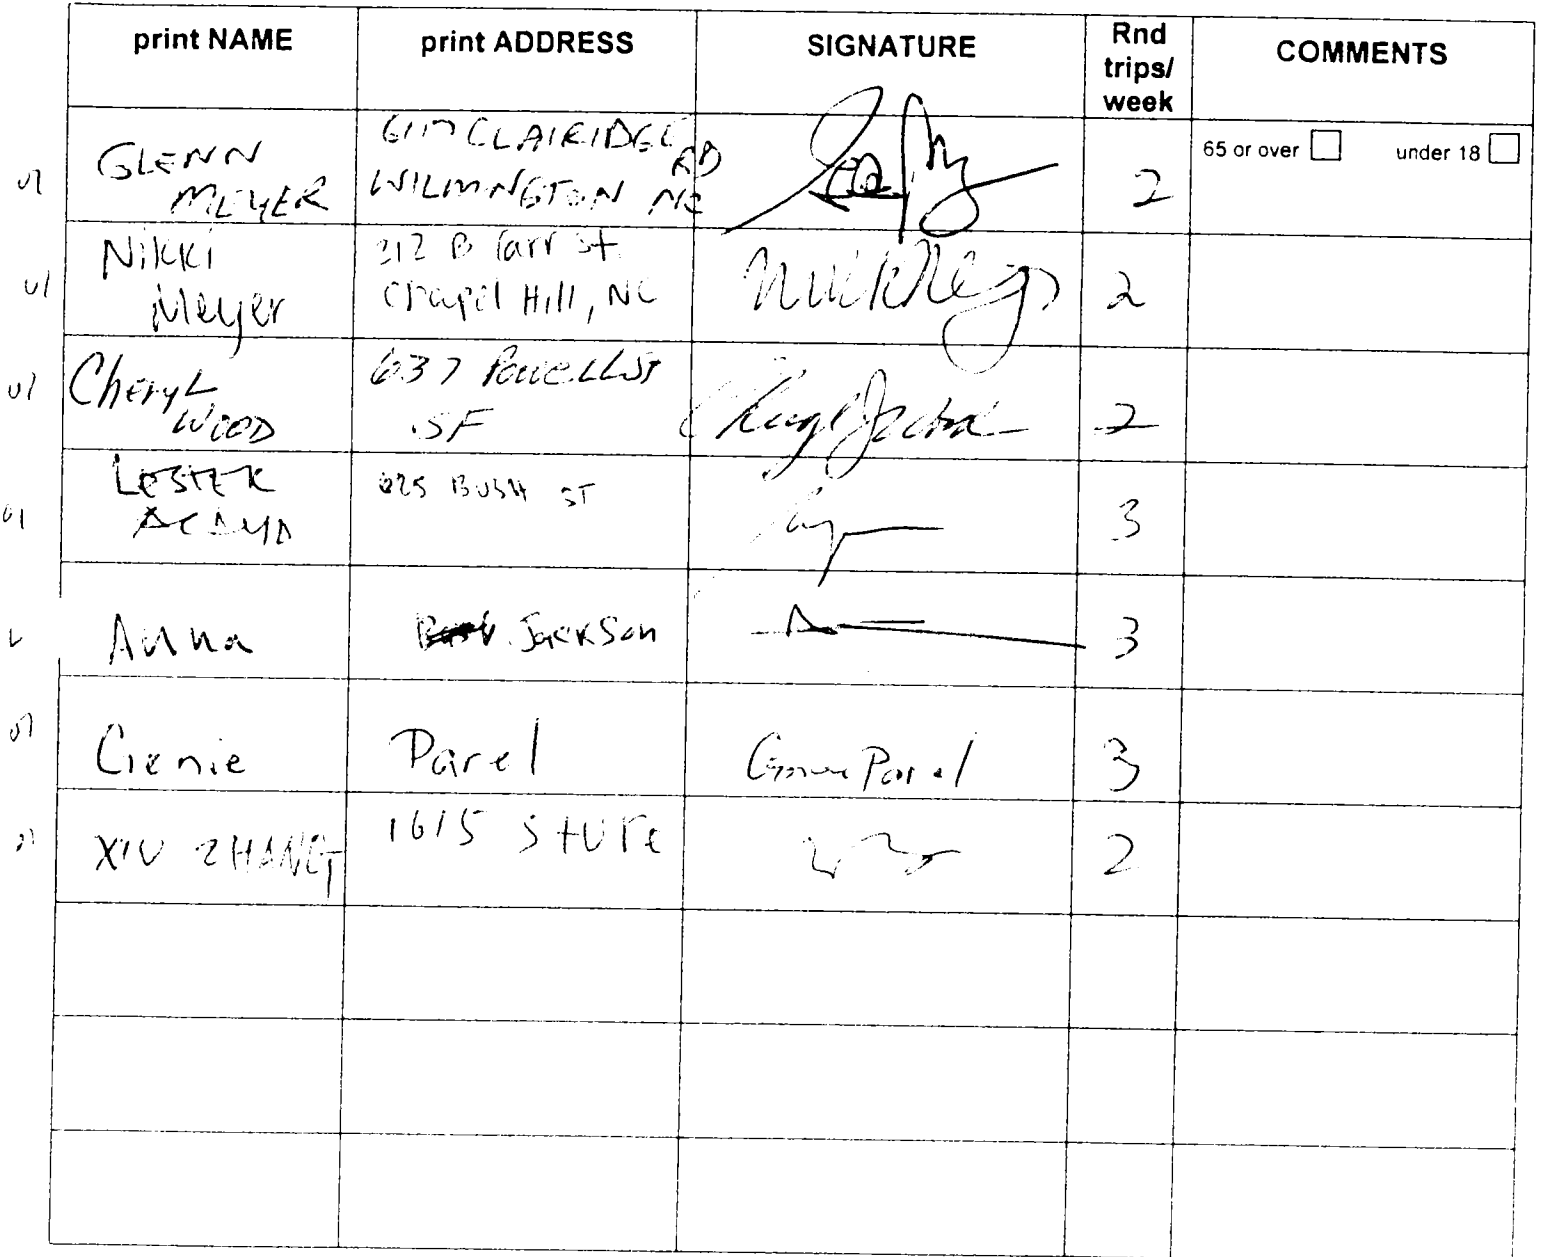 print NAME
print ADDRESS
SIGNATURE
Rnd
trips/
week
COMMENTS
GLENN
MEYER
CLAIRIDGE
RD
WILMINGTON NC
2
65 or over
under 18
Nikki
Meyer
212 B Carr St
Chapel Hill, NC
2
Cheryl
WOOD
637 Powell St
SF
2
LESTER
625 BUSH ST
3
Anna
Jackson
3
Genie
Parel
Parel
3
XIU ZHANG
1615
2